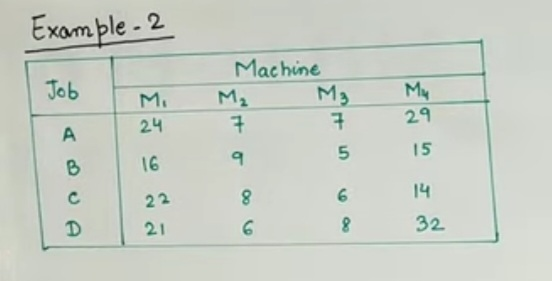 Example-2
Machine
Job
M₁ M₂ M₃ M₄
A 24 7 7 29
B 16 9 5 15
C 22 8 6 14
D 21 6 8 32